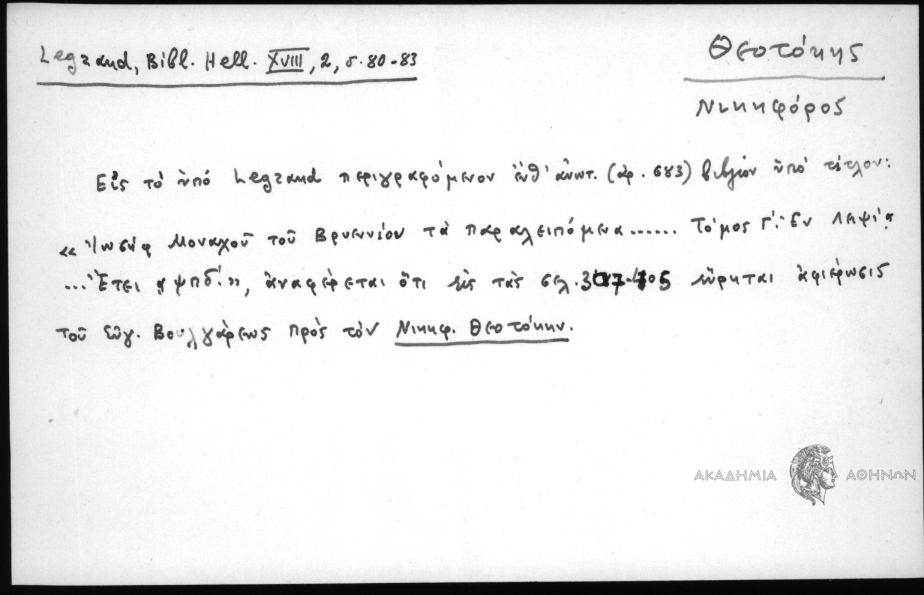 Legrand, Bibl. Hell. XVIII, 2, σ. 80-83
Θεοτόκης
Νικηφόρος
Εἰς τὸ ὑπό Legrand περιγραφόμενον ἐνθ' ἀνωτ. (ἀρ. 683) βιβλίον ὑπό τίτλον:
«Ἰωσήφ Μοναχοῦ τοῦ Βρυεννίου τὰ παραλειπόμενα...... Τόμος Γ΄. Ἐν Λειψίᾳ
...Ἔτει ͵αψπδ΄.», ἀναφέρεται ὅτι εἰς τὰς σελ. 405 εὕρηται ἀφιέρωσις
τοῦ Εὐγ. Βουλγάρεως πρὸς τὸν Νικηφ. Θεοτόκην.
ΑΚΑΔΗΜΙΑ ΑΘΗΝΩΝ